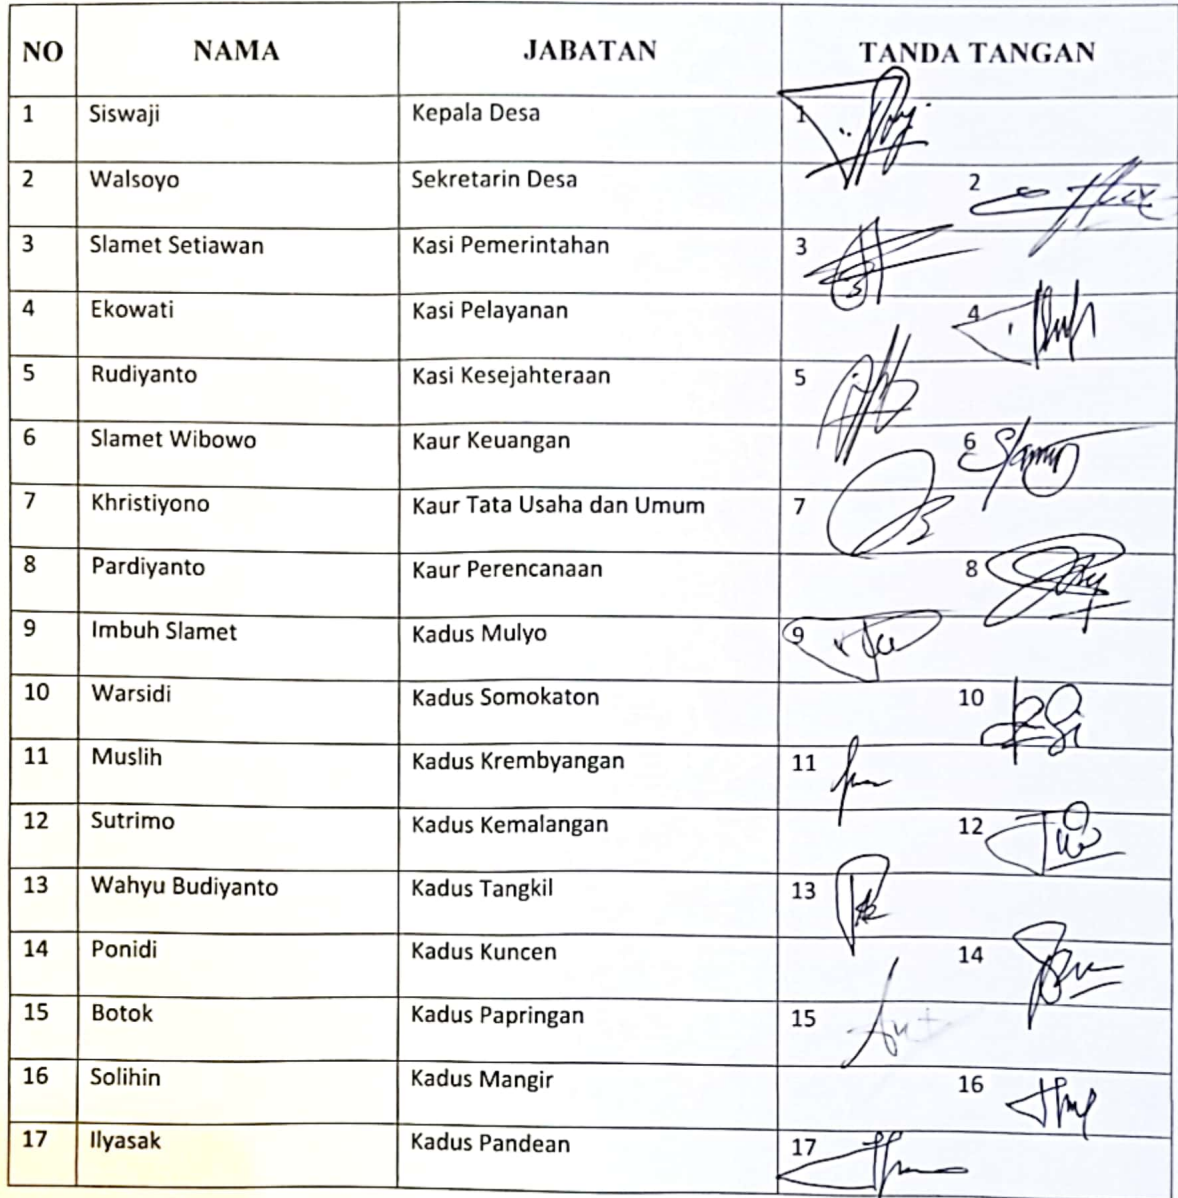 NO NAMA JABATAN TANDA TANGAN
1 Siswaji Kepala Desa 1
2 Walsoyo Sekretarin Desa 2
3 Slamet Setiawan Kasi Pemerintahan 3
4 Ekowati Kasi Pelayanan 4
5 Rudiyanto Kasi Kesejahteraan 5
6 Slamet Wibowo Kaur Keuangan 6
7 Khristiyono Kaur Tata Usaha dan Umum 7
8 Pardiyanto Kaur Perencanaan 8
9 Imbuh Slamet Kadus Mulyo 9
10 Warsidi Kadus Somokaton 10
11 Muslih Kadus Krembyangan 11
12 Sutrimo Kadus Kemalangan 12
13 Wahyu Budiyanto Kadus Tangkil 13
14 Ponidi Kadus Kuncen 14
15 Botok Kadus Papringan 15
16 Solihin Kadus Mangir 16
17 Ilyasak Kadus Pandean 17